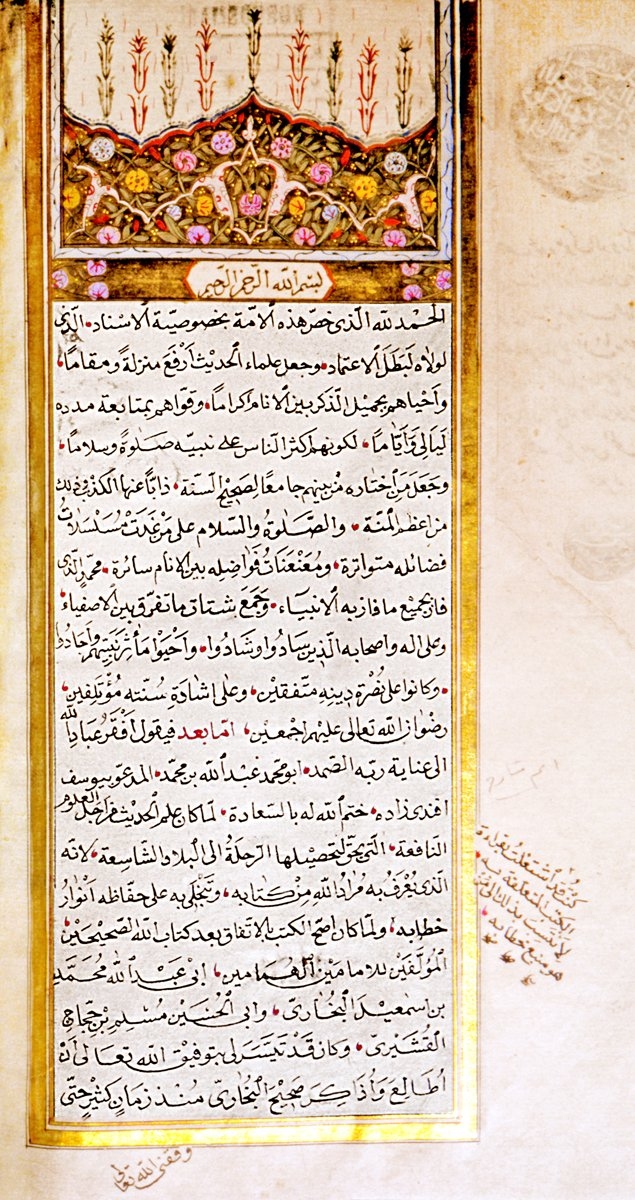 بسم الله الرحمن الرحيم
الحمد لله الذي خص هذه الامة بخصوصية الاسناد، الذي
لولاه لبطل الاعتماد، وجعل علماء الحديث أرفع منزلةً ومقامًا،
وأحياهم بجميل الذكر بين الانام إكرامًا، وقواهم بمتابعة مدده
ليالي وأيامًا، لكونهم اكثر الناس على نبيه صلوةً وسلاما،
وجعل من اختاره من بينهم جامعًا لصحيح السنة، ذابًّا عنها الكذب وذلك
من اعظم المنة، والصلوة والسلام على من غدت مسلسلات
فضائله متواترة، ومعنعنات فواضله بين الانام سائرة، محمد الذي
فاز بجميع ما فاز به الانبياء، وجمع شتات ما تفرق بين الاصفياء
وعلى اله واصحابه الذين سادوا وشادوا، وأحيوا مآثر نبيهم وأجادوا
، وكانوا على نصرة دينه متفقين، وعلى اشادة سنته مؤتلفين،
رضوان الله تعالى عليهم اجمعين، امّا بعد فيقول أفقر عباد الله
الى عناية ربه الصمد، ابو محمد عبد الله بن محمد، المدعو بيوسف
افندي زاده، ختم الله له بالسعادة، لما كان علم الحديث من اجل العلوم
النافعة، التي يحق لتحصيلها الرحلة الى البلاد الشاسعة، لانه
الذي يعرف به مراد الله من كتابه، وتتجلى به على حفاظه أنوار
خطابه، ولما كان اصح الكتب بالاتفاق بعد كتاب الله الصحيحين
المؤلفين للامامين الهمامين، ابي عبد الله محمد
بن اسمعيل البخاري، وابي الحسين مسلم بن حجاج
القشيري، وكان قد تيسر لي بتوفيق الله تعالى أن
أطالع وأذاكر صحيح البخاري منذ زمان كثير حتى
وفقني الله تعالى
كنت قد اشتغلت بقراءة
الكتب المتعلقة به
هو منبع خطابه